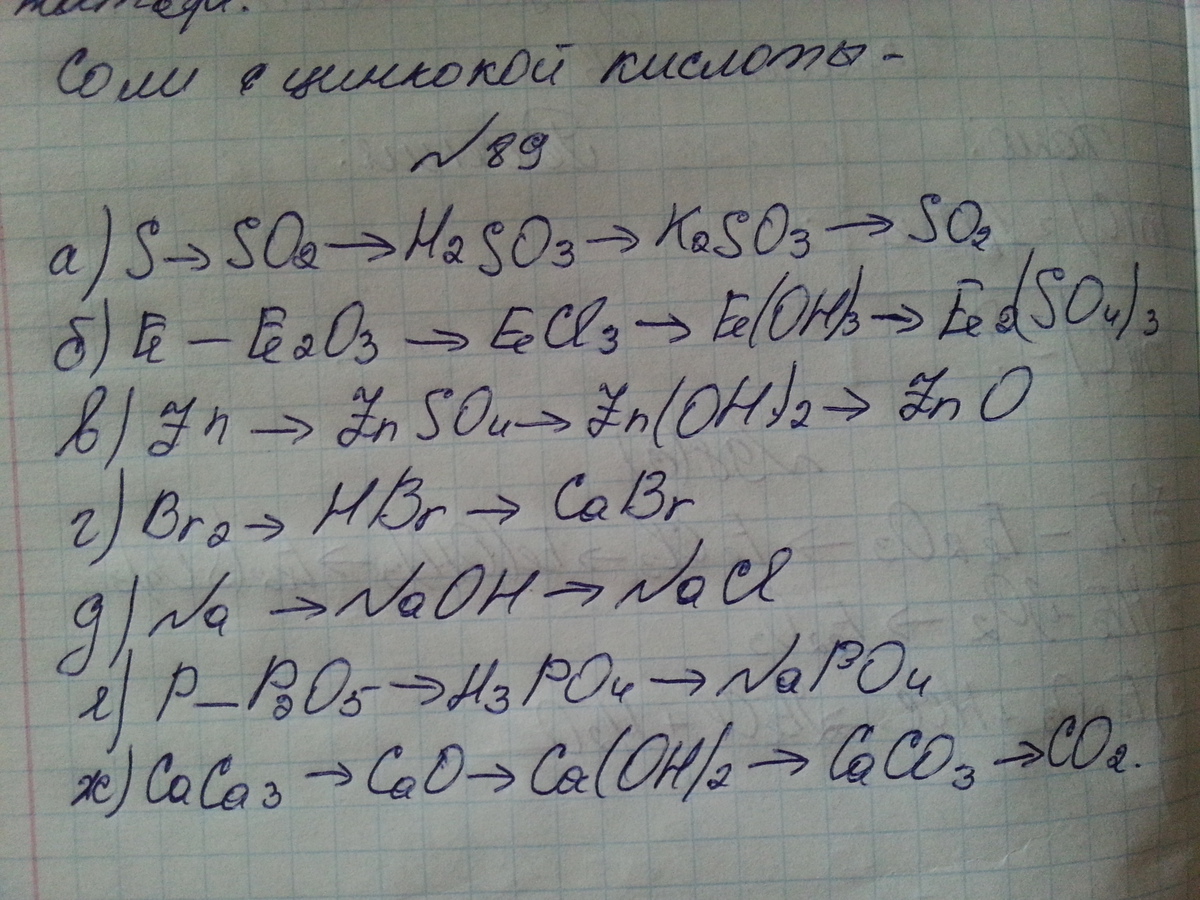 Соли с цинкокой кислоты -
№ 89
а) S → SO2 → H2SO3 → K2SO3 → SO2
б) Fe — Fe2O3 → FeCl3 → Fe(OH)3 → Fe2(SO4)3
в) Zn → ZnSO4 → Zn(OH)2 → ZnO
г) Br2 → HBr → CaBr
д) Na → NaOH → NaCl
е) P — P2O5 → H3PO4 → NaPO4
ж) CaCa3 → CaO → Ca(OH)2 → CaCO3 → CO2.